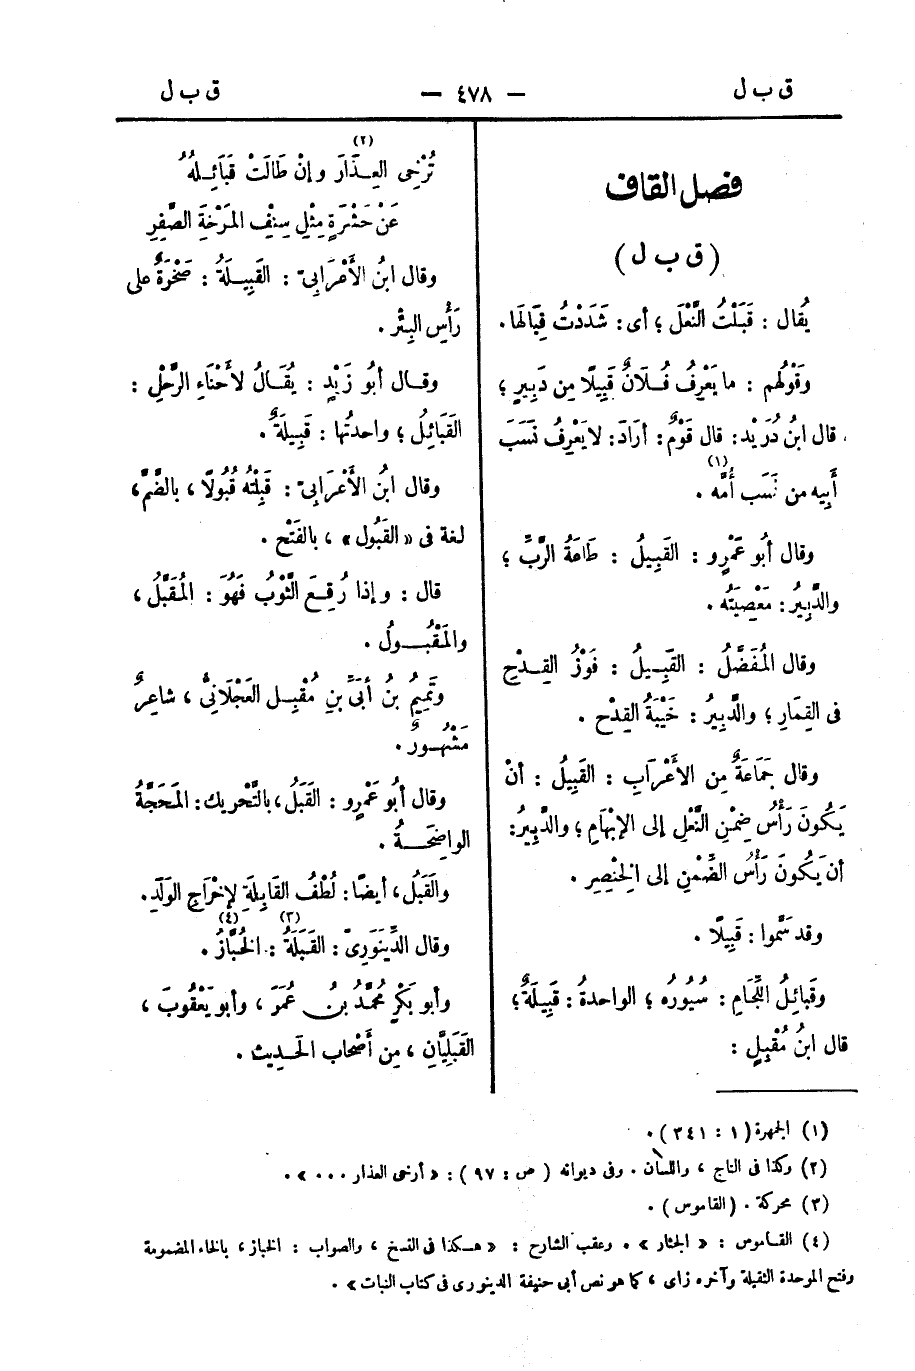 ق ب ل — ٤٧٨ — ق ب ل
فصل القاف
(ق ب ل)
يُقال : قَبَلْتُ النَّعْلَ ؛ أى : شَدَدْتُ قِبَالَها.
وقَوْلُهم : ما يَعْرِفُ فُلَانٌ قَبِيلًا مِن دَبِيرٍ ؛
قال ابنُ دُرَيْد: قال قَوْمٌ: أرَادَ: لا يَعْرِفُ نَسَبَ
أَبِيه من نَسَب أُمِّه (١).
وقال أبُو عَمْرٍو : القَبِيلُ : طَاعَةُ الرَّبِّ ؛
والدَّبِيرُ : مَعْصِيَتُه .
وقال المُفَضَّلُ : القَبِيلُ : فَوْزُ القِدْحِ
فى القِمَارِ ؛ والدَّبِيرُ : خَيْبَةُ القِدْح .
وقال جَمَاعَةٌ مِن الأَعْرَابِ : القَبِيلُ : أنْ
يَكُونَ رَأْسُ ضِمْنِ النَّعْلِ إلى الإبْهَامِ ؛ والدَّبِيرُ:
أن يَكُونَ رَأْسُ الضِّمْنِ إلى الخِنْصِرِ .
وقد سَمَّوا : قَبِيلًا .
وقَبائِلُ اللِّجَامِ : سُيُورُه ؛ الواحدةُ : قَبِيلَةٌ ؛
قال ابنُ مُقْبِلٍ :
تُرْخِى العِذَارَ (٢) وإنْ طَالَتْ قَبَائِلُهُ
عَنْ حَشْرَةٍ مِثْلِ سِنْفِ المَرْخَةِ الصَّفِرِ
وقال ابنُ الأَعْرَابىّ : القَبِيلَةُ : صَخْرَةٌ على
رَأْسِ البِئْر .
وقال أبُو زَيْدٍ : يُقَالُ لأَحْنَاءِ الرَّحْلِ :
القَبَائِلُ ؛ واحدتُها : قَبِيلَةٌ .
وقال ابنُ الأَعْرَابىّ : قَبِلْتُه قُبُولًا ، بالضَّمِّ ،
لغة فى « القَبُول » ، بالفَتْح .
قال : وإذا رُقِعَ الثَّوْبُ فَهُوَ : المُقَبَّلُ ،
والمَقْبُولُ .
وتَمِيمُ بنُ أُبَىِّ بنِ مُقْبِل العَجْلَانِىُّ ، شاعِرٌ
مَشْهُورٌ .
وقال أبُو عَمْرٍو : القَبَلُ ، بالتَّحْرِيك : المَحَجَّةُ
الواضِحَةُ .
والقَبَلُ ، أيضًا : لُطْفُ القَابِلَةِ لإخْرَاجِ الوَلَدِ.
وقال الدِّينَوَرِىّ : القَبَلَةُ (٣) : الخُبَّازُ (٤) .
وأبو بَكْرٍ مُحَمَّدُ بنُ عُمَرَ ، وأبو يَعْقُوبَ ،
القَبَلِيَّانِ ، مِن أَصْحَابِ الحَدِيث .
(١) الجمهرة (١ : ٣٤١) .
(٢) وكذا فى التاج ، واللسان . وفى ديوانه ( ص : ٩٧ ) : « أرخى العذار ... » .
(٣) محركة . (القاموس) .
(٤) القاموس : « الجثار » . وعقب الشارح : « هكذا فى النسخ ، والصواب : الخباز ، بالخاء المضمومة
وفتح الموحدة الثقيلة وآخره زاى ، كما هو نص أبى حنيفة الدينورى فى كتاب النبات » .